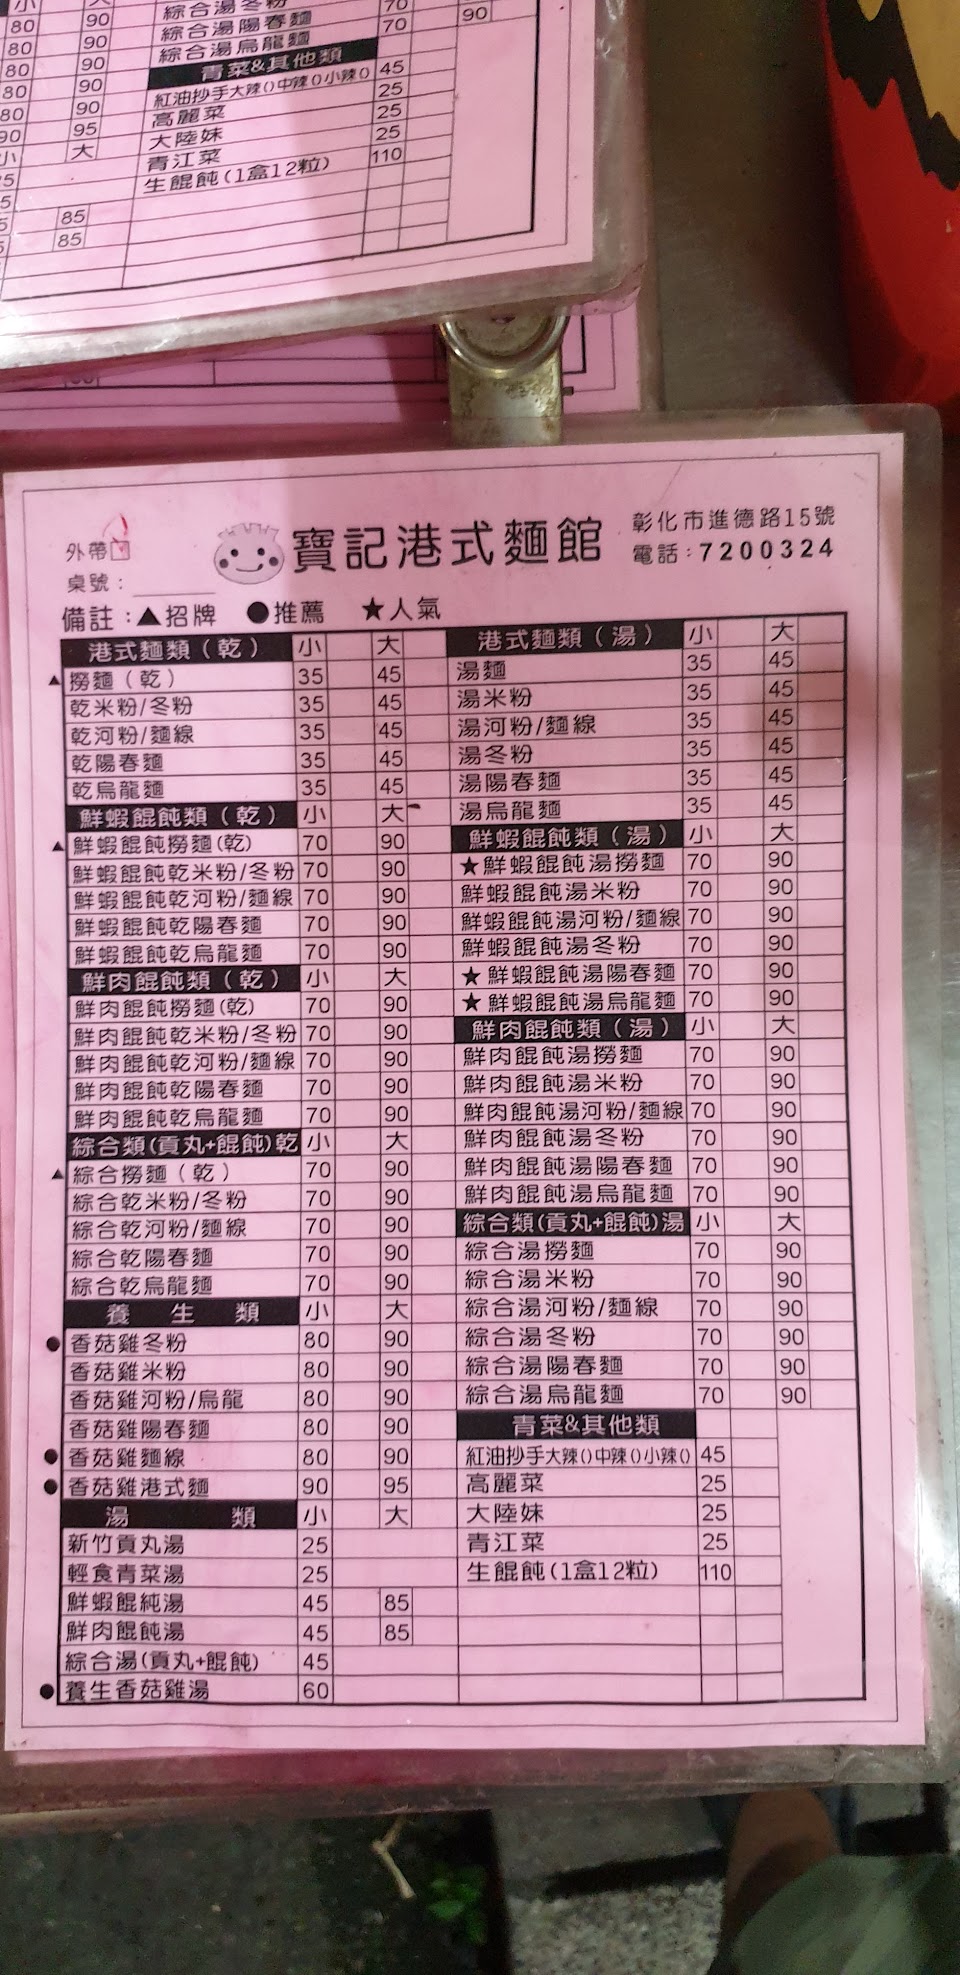 小 大 綜合湯冬粉 70
80 90 綜合湯陽春麵 70 90
80 90 綜合湯烏龍麵
80 90 青菜&其他類
80 90 紅油抄手大辣()中辣()小辣() 45
80 90 高麗菜 25
90 95 大陸妹 25
小 大 青江菜 25
生餛飩(1盒12粒) 110
85
85
外帶
桌號:
寶記港式麵館
彰化市進德路15號
電話:7200324
備註:▲招牌 ●推薦 ★人氣
港式麵類(乾) 小 大
▲撈麵(乾) 35 45
乾米粉/冬粉 35 45
乾河粉/麵線 35 45
乾陽春麵 35 45
乾烏龍麵 35 45
鮮蝦餛飩類(乾) 小 大
▲鮮蝦餛飩撈麵(乾) 70 90
鮮蝦餛飩乾米粉/冬粉 70 90
鮮蝦餛飩乾河粉/麵線 70 90
鮮蝦餛飩乾陽春麵 70 90
鮮蝦餛飩乾烏龍麵 70 90
鮮肉餛飩類(乾) 小 大
鮮肉餛飩撈麵(乾) 70 90
鮮肉餛飩乾米粉/冬粉 70 90
鮮肉餛飩乾河粉/麵線 70 90
鮮肉餛飩乾陽春麵 70 90
鮮肉餛飩乾烏龍麵 70 90
綜合類(貢丸+餛飩)乾 小 大
▲綜合撈麵(乾) 70 90
綜合乾米粉/冬粉 70 90
綜合乾河粉/麵線 70 90
綜合乾陽春麵 70 90
綜合乾烏龍麵 70 90
養生類 小 大
●香菇雞冬粉 80 90
香菇雞米粉 80 90
香菇雞河粉/烏龍 80 90
香菇雞陽春麵 80 90
●香菇雞麵線 80 90
●香菇雞港式麵 90 95
湯類 小 大
新竹貢丸湯 25
輕食青菜湯 25
鮮蝦餛純湯 45 85
鮮肉餛飩湯 45 85
綜合湯(貢丸+餛飩) 45
●養生香菇雞湯 60
港式麵類(湯) 小 大
湯麵 35 45
湯米粉 35 45
湯河粉/麵線 35 45
湯冬粉 35 45
湯陽春麵 35 45
湯烏龍麵 35 45
鮮蝦餛飩類(湯) 小 大
★鮮蝦餛飩湯撈麵 70 90
鮮蝦餛飩湯米粉 70 90
鮮蝦餛飩湯河粉/麵線 70 90
鮮蝦餛飩湯冬粉 70 90
★鮮蝦餛飩湯陽春麵 70 90
★鮮蝦餛飩湯烏龍麵 70 90
鮮肉餛飩類(湯) 小 大
鮮肉餛飩湯撈麵 70 90
鮮肉餛飩湯米粉 70 90
鮮肉餛飩湯河粉/麵線 70 90
鮮肉餛飩湯冬粉 70 90
鮮肉餛飩湯陽春麵 70 90
鮮肉餛飩湯烏龍麵 70 90
綜合類(貢丸+餛飩)湯 小 大
綜合湯撈麵 70 90
綜合湯米粉 70 90
綜合湯河粉/麵線 70 90
綜合湯冬粉 70 90
綜合湯陽春麵 70 90
綜合湯烏龍麵 70 90
青菜&其他類
紅油抄手大辣()中辣()小辣() 45
高麗菜 25
大陸妹 25
青江菜 25
生餛飩(1盒12粒) 110